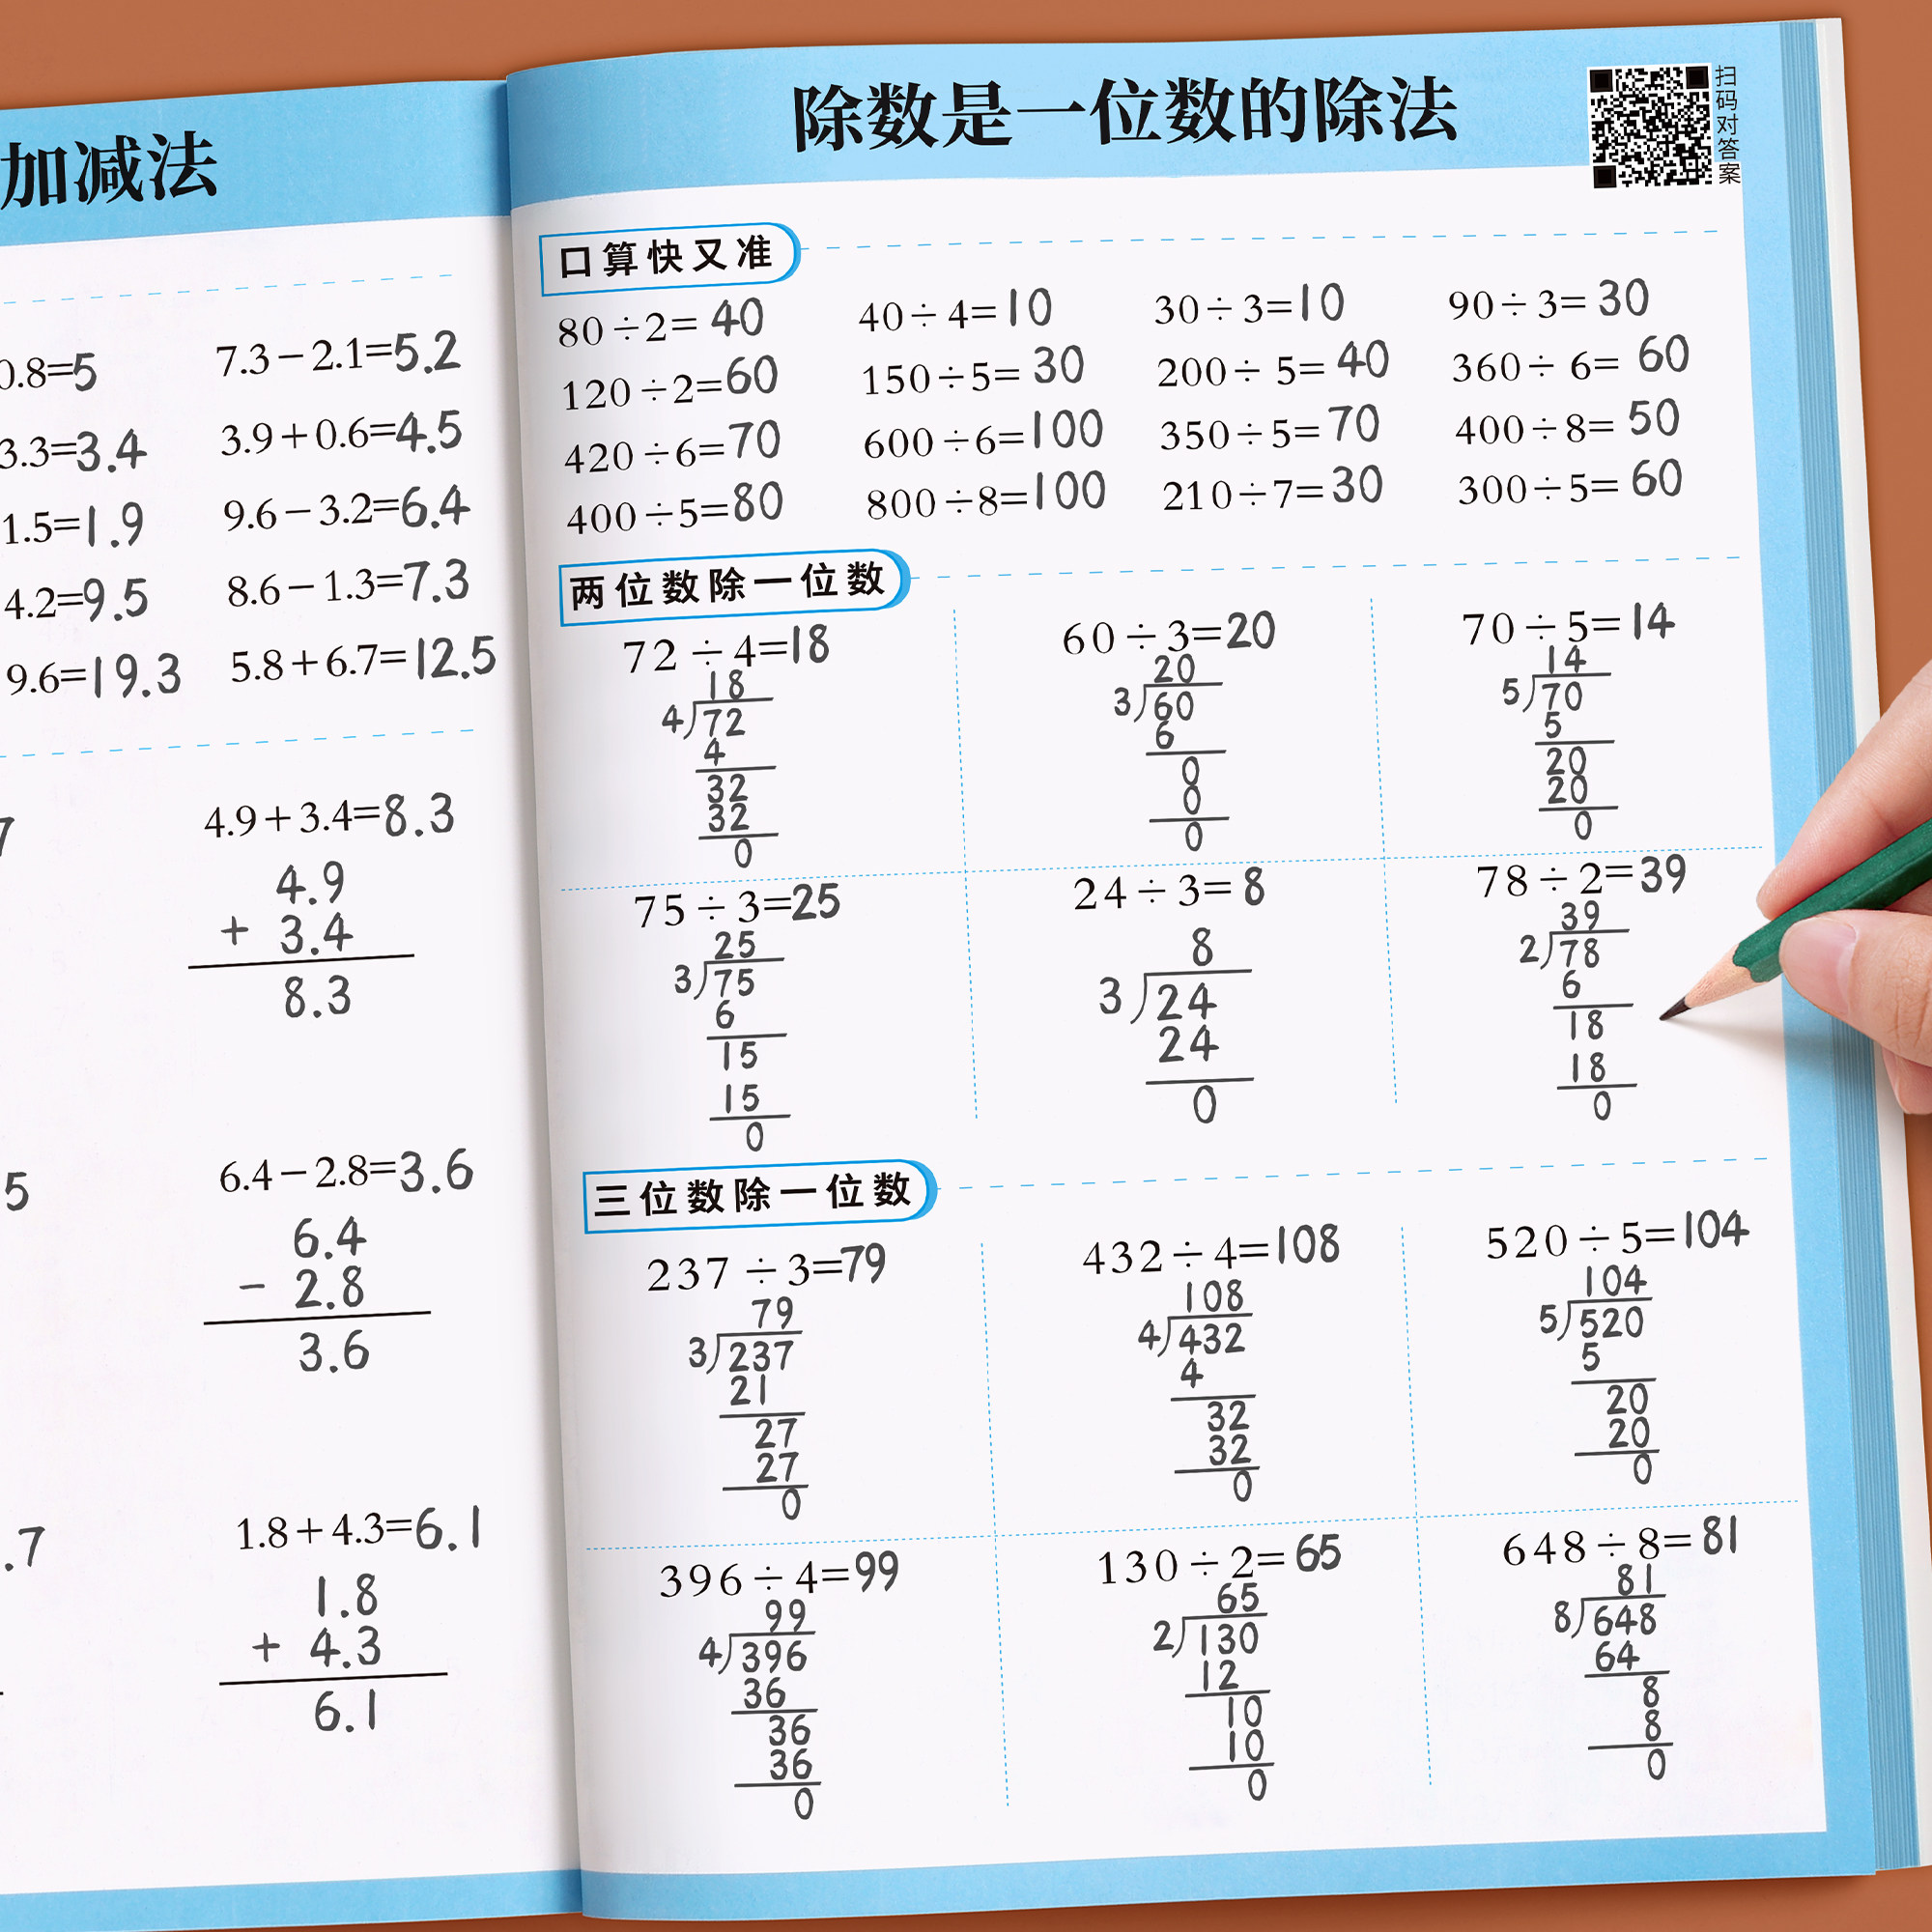 加减法
0.8=5 7.3-2.1=5.2
3.3=3.4 3.9+0.6=4.5
1.5=1.9 9.6-3.2=6.4
4.2=9.5 8.6-1.3=7.3
9.6=19.3 5.8+6.7=12.5
7 4.9+3.4=8.3
4.9
+ 3.4
8.3
5 6.4-2.8=3.6
6.4
- 2.8
3.6
.7 1.8+4.3=6.1
1.8
+ 4.3
6.1
除数是一位数的除法
扫码对答案
口算快又准
80÷2=40 40÷4=10 30÷3=10 90÷3=30
120÷2=60 150÷5=30 200÷5=40 360÷6=60
420÷6=70 600÷6=100 350÷5=70 400÷8=50
400÷5=80 800÷8=100 210÷7=30 300÷5=60
两位数除一位数
72÷4=18
18
4)72
4
32
32
0
60÷3=20
20
3)60
6
0
0
0
70÷5=14
14
5)70
5
20
20
0
75÷3=25
25
3)75
6
15
15
0
24÷3=8
8
3)24
24
0
78÷2=39
39
2)78
6
18
18
0
三位数除一位数
237÷3=79
79
3)237
21
27
27
0
432÷4=108
108
4)432
4
32
32
0
520÷5=104
104
5)520
5
20
20
0
396÷4=99
99
4)396
36
36
36
0
130÷2=65
65
2)130
12
10
10
0
648÷8=81
81
8)648
64
8
8
0